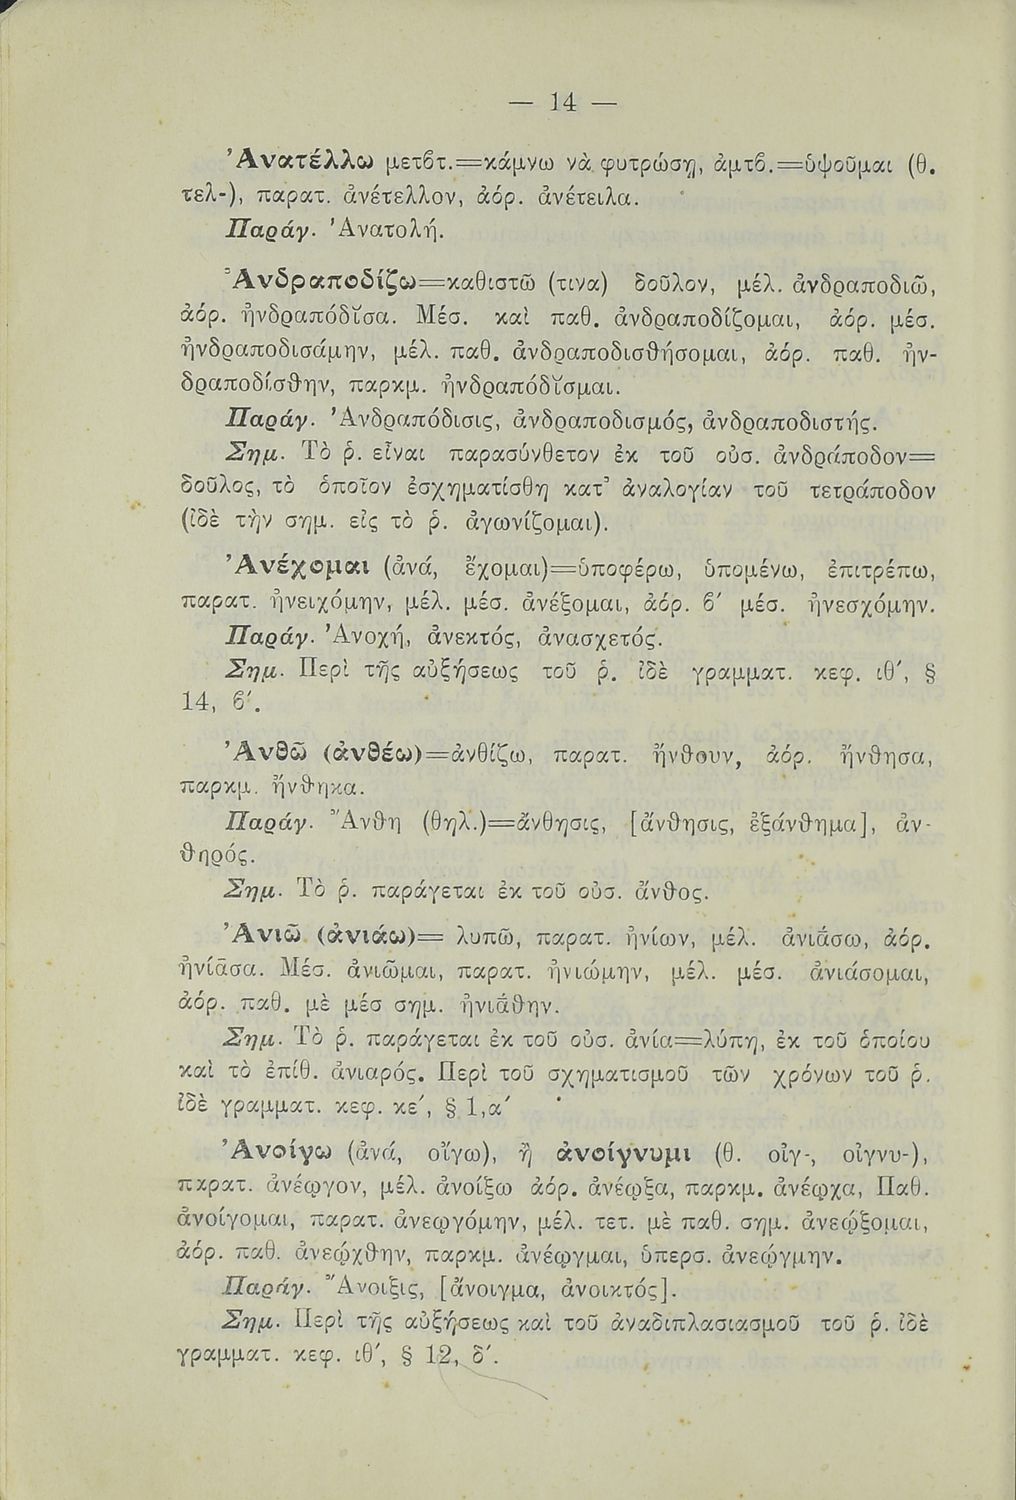 — 14 —
Ἀνατέλλω μετβτ.=κάμνω νὰ φυτρώσῃ, ἀμτβ.=ὑψοῦμαι (θ.
τελ-), παρατ. ἀνέτελλον, ἀόρ. ἀνέτειλα.
Παράγ. Ἀνατολή.
Ἀνδραποδίζω=καθιστῶ (τινα) δοῦλον, μέλ. ἀνδραποδιῶ,
ἀόρ. ἠνδραπόδῐσα. Μέσ. καὶ παθ. ἀνδραποδίζομαι, ἀόρ. μέσ.
ἠνδραποδισάμην, μέλ. παθ. ἀνδραποδισθήσομαι, ἀόρ. παθ. ἠν-
δραποδίσθην, παρκμ. ἠνδραπόδῐσμαι.
Παράγ. Ἀνδραπόδισις, ἀνδραποδισμός, ἀνδραποδιστής.
Σημ. Τὸ ῥ. εἶναι παρασύνθετον ἐκ τοῦ οὐσ. ἀνδράποδον=
δοῦλος, τὸ ὁποῖον ἐσχηματίσθη κατ᾿ ἀναλογίαν τοῦ τετράποδον
(ἰδὲ τὴν σημ. εἰς τὸ ῥ. ἀγωνίζομαι).
Ἀνέχομαι (ἀνά, ἔχομαι)=ὑποφέρω, ὑπομένω, ἐπιτρέπω,
παρατ. ἠνειχόμην, μέλ. μέσ. ἀνέξομαι, ἀόρ. β′ μέσ. ἠνεσχόμην.
Παράγ. Ἀνοχή, ἀνεκτός, ἀνασχετός.
Σημ. Περὶ τῆς αὐξήσεως τοῦ ῥ. ἰδὲ γραμματ. κεφ. ιθ′, §
14, β′.
Ἀνθῶ (ἀνθέω)=ἀνθίζω, παρατ. ἤνθουν, ἀόρ. ἤνθησα,
παρκμ. ἤνθηκα.
Παράγ. Ἄνθη (θηλ.)=ἄνθησις, [ἄνθησις, ἐξάνθημα], ἀν-
θηρός.
Σημ. Τὸ ῥ. παράγεται ἐκ τοῦ οὐσ. ἄνθος.
Ἀνιῶ (ἀνιάω)= λυπῶ, παρατ. ἠνίων, μέλ. ἀνιάσω, ἀόρ.
ἠνίασα. Μέσ. ἀνιῶμαι, παρατ. ἠνιώμην, μέλ. μέσ. ἀνιάσομαι,
ἀόρ. παθ. μὲ μέσ σημ. ἠνιάθην.
Σημ. Τὸ ῥ. παράγεται ἐκ τοῦ οὐσ. ἀνία=λύπη, ἐκ τοῦ ὁποίου
καὶ τὸ ἐπίθ. ἀνιαρός. Περὶ τοῦ σχηματισμοῦ τῶν χρόνων τοῦ ῥ.
ἰδὲ γραμματ. κεφ. κε′, § 1,α′
Ἀνοίγω (ἀνά, οἴγω), ἢ ἀνοίγνυμι (θ. οἰγ-, οἰγνυ-),
παρατ. ἀνέῳγον, μέλ. ἀνοίξω ἀόρ. ἀνέῳξα, παρκμ. ἀνέῳχα, Παθ.
ἀνοίγομαι, παρατ. ἀνεῳγόμην, μέλ. τετ. μὲ παθ. σημ. ἀνεῴξομαι,
ἀόρ. παθ. ἀνεῴχθην, παρκμ. ἀνέῳγμαι, ὑπερσ. ἀνεῴγμην.
Παράγ. Ἄνοιξις, [ἄνοιγμα, ἀνοικτός].
Σημ. Περὶ τῆς αὐξήσεως καὶ τοῦ ἀναδιπλασιασμοῦ τοῦ ῥ. ἰδὲ
γραμματ. κεφ. ιθ′, § 12, δ′.